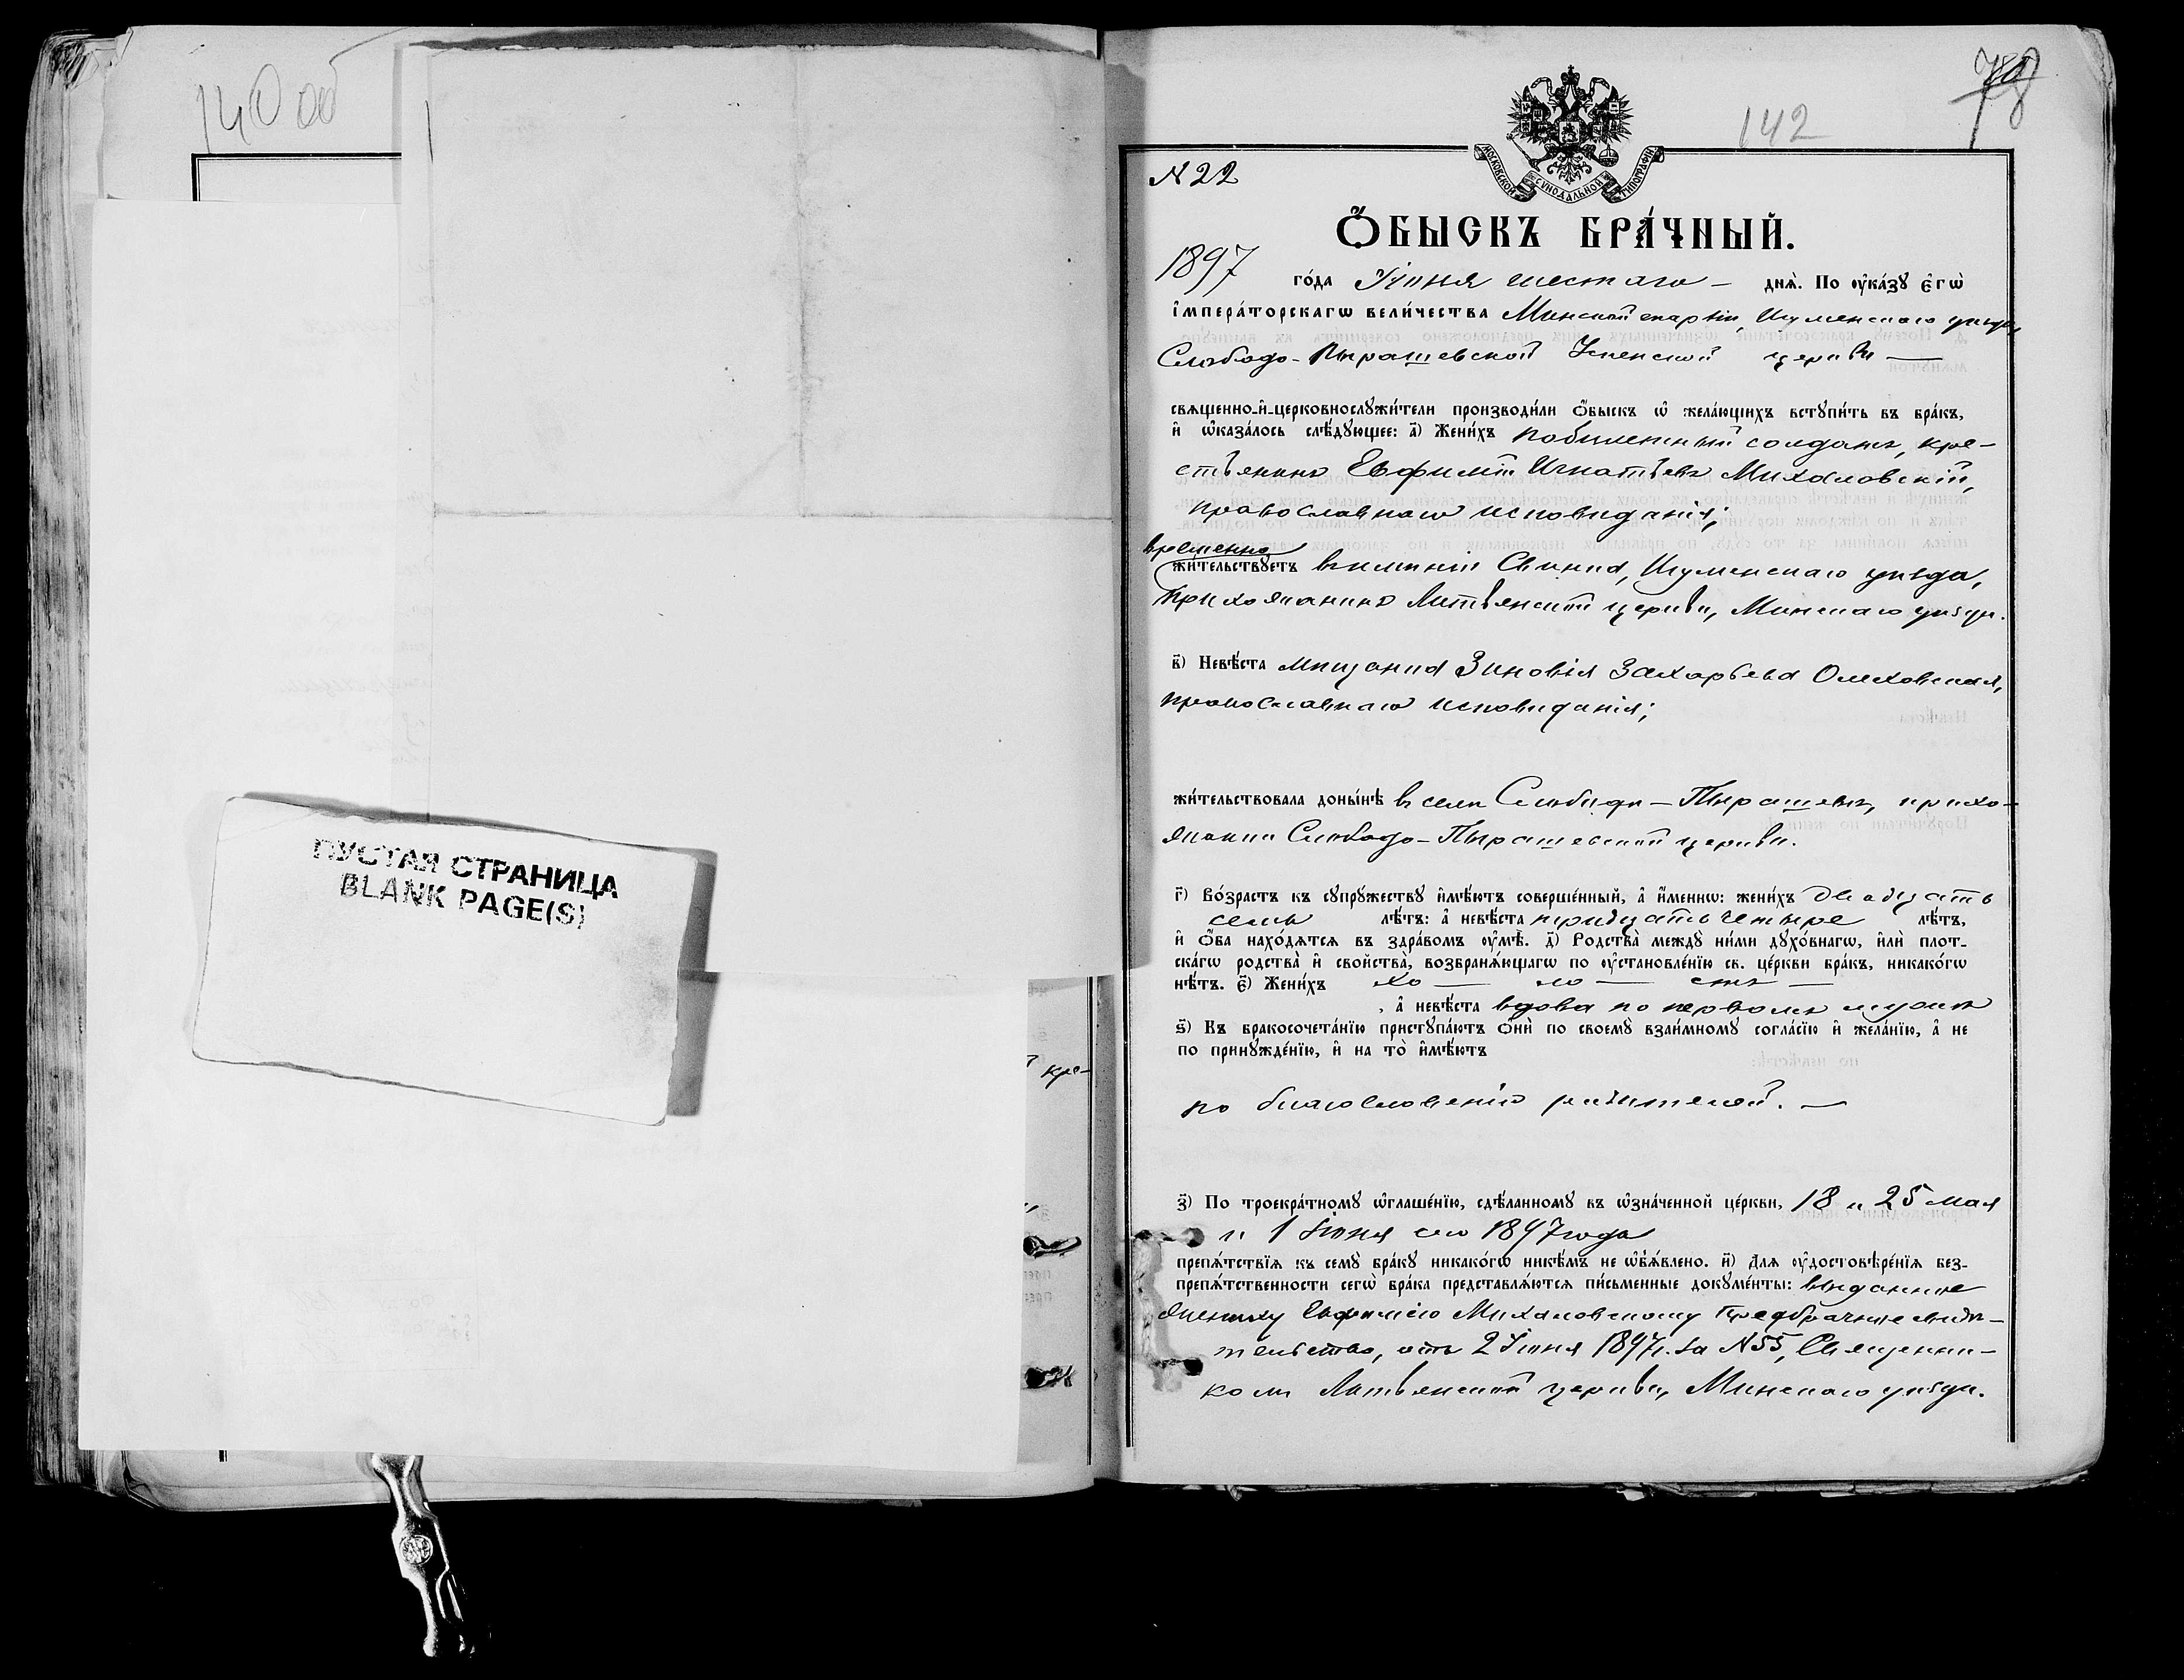 140 об
ПУСТАЯ СТРАНИЦА
BLANK PAGE(S)
кре-
142
78
МОСКОВСКОЙ СѴНОДАЛЬНОЙ ТИПОГРАФІИ
N 22
Ѻ҆БЫСКЪ БРА́ЧНЫЙ.
1897 го́да Іюня шестаго – днѧ̀. По ᲂу҆ка́зꙋ є҆гѡ̀
і҆мпера́торскагѡ вели́чества Минской епархіи, Игуменскаго уѣзда,
Слободо-Пырашевской Успенской церкви —
свѧщенно-и҆-церковнослꙋжи́тели производи́ли ѻ҆́быскъ ѡ҆ жела́ющихъ встꙋпи́ть въ бра́къ,
и҆ ѡ҆каза́лось слѣ́дꙋющее: а҃) Жени́хъ побилетный солдатъ, кре-
стьянинъ Евфимій Игнатьевъ Михаловскій,
православнаго исповѣданія;
временно
жи́тельствꙋетъ въ имѣніи Свинка, Игуменскаго уѣзда,
прихожанинъ Литвянской церкви, Минскаго уѣзда.
в҃) Невѣ́ста мѣщанка Зиновія Захарьева Олеховская,
православнаго исповѣданія;
жи́тельствовала доны́нѣ въ селѣ Слободѣ-Пырашевѣ, прихо-
жанка Слободо-Пырашевской церкви.
г҃) Во́зрастъ къ сꙋпрꙋ́жествꙋ и҆мѣ́ютъ соверше́нный, а҆ и҆́меннѡ: жени́хъ двадцать
семь лѣ́тъ: а҆ невѣ́ста тридцать четыре лѣ́тъ,
и҆ ѻ҆́ба нахо́дѧтсѧ въ здра́вомъ ᲂу҆мѣ̀. д҃) Родства̀ междꙋ̀ ни́ми дꙋхо́внагѡ, и҆лѝ плот-
ска́гѡ родства̀ и҆ свойства̀, возбранѧ́ющагѡ по ᲂу҆становле́нїю св. це́ркви бра́къ, никако́гѡ
нѣ́тъ. є҃) Жени́хъ хо — ло — стъ —
, а҆ невѣ́ста вдова по первомъ мужѣ
ѕ҃) Къ бракосочета́нїю пристꙋпа́ютъ ѻ҆нѝ по своемꙋ̀ взаи́мномꙋ согла́сїю и҆ жела́нїю, а҆ не
по принꙋжде́нїю, и҆ на то̀ и҆мѣ́ютъ
по благословенію родителей. —
з҃) По троекра́тномꙋ ѡ҆глаше́нїю, сдѣ́ланномꙋ въ ѡ҆зна́ченной це́ркви, 18 и 25 мая
и 1 Іюня сего 1897 года
препѧ́тствїѧ къ семꙋ̀ бра́кꙋ никако́гѡ никѣ́мъ не ѡ҆б̾ѧ́влено. и҃) Длѧ ᲂу҆достовѣре́нїѧ без-
препѧ́тственности сегѡ̀ бра́ка представлѧ́ютсѧ пи́сьменные докꙋме́нты: выданное
жениху Евфимію Михаловскому Предбрачное свидѣ-
тельство, отъ 2 Іюня 1897 г. за N 55, Священни-
комъ Литвянской церкви, Минскаго уѣзда.